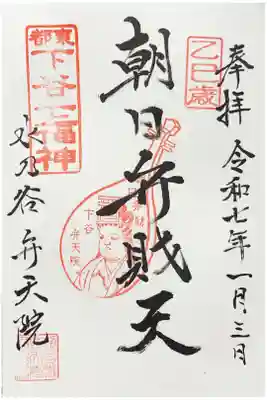 奉拝
令和七年一月三日
乙巳歳
朝日弁財天
下谷
弁天院
東都
下谷七福神
水乃谷
弁天院